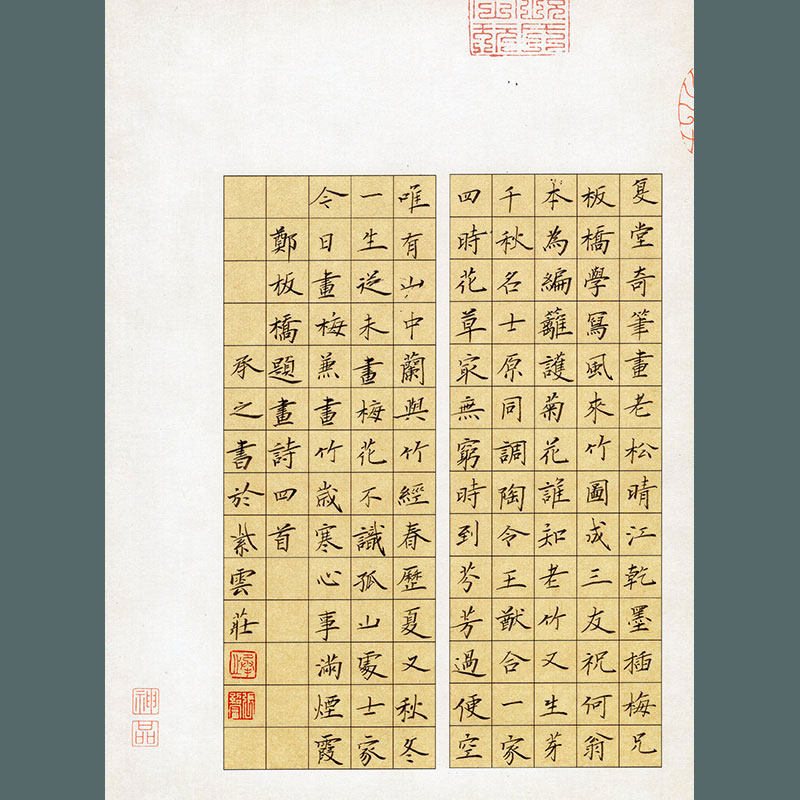 复堂奇筆畫老松晴江乾墨插梅兄
板橋學寫風來竹圖成三友祝何翁
本為編籬護菊花誰知老竹又生芽
千秋名士原同調陶令王猷合一家
四時花草冣無窮時到芬芳過便空
唯有山中蘭與竹經春歷夏又秋冬
一生從未畫梅花不識孤山處士家
今日畫梅兼畫竹歲寒心事滿煙霞
鄭板橋題畫詩四首
承之書於紫雲莊
神品